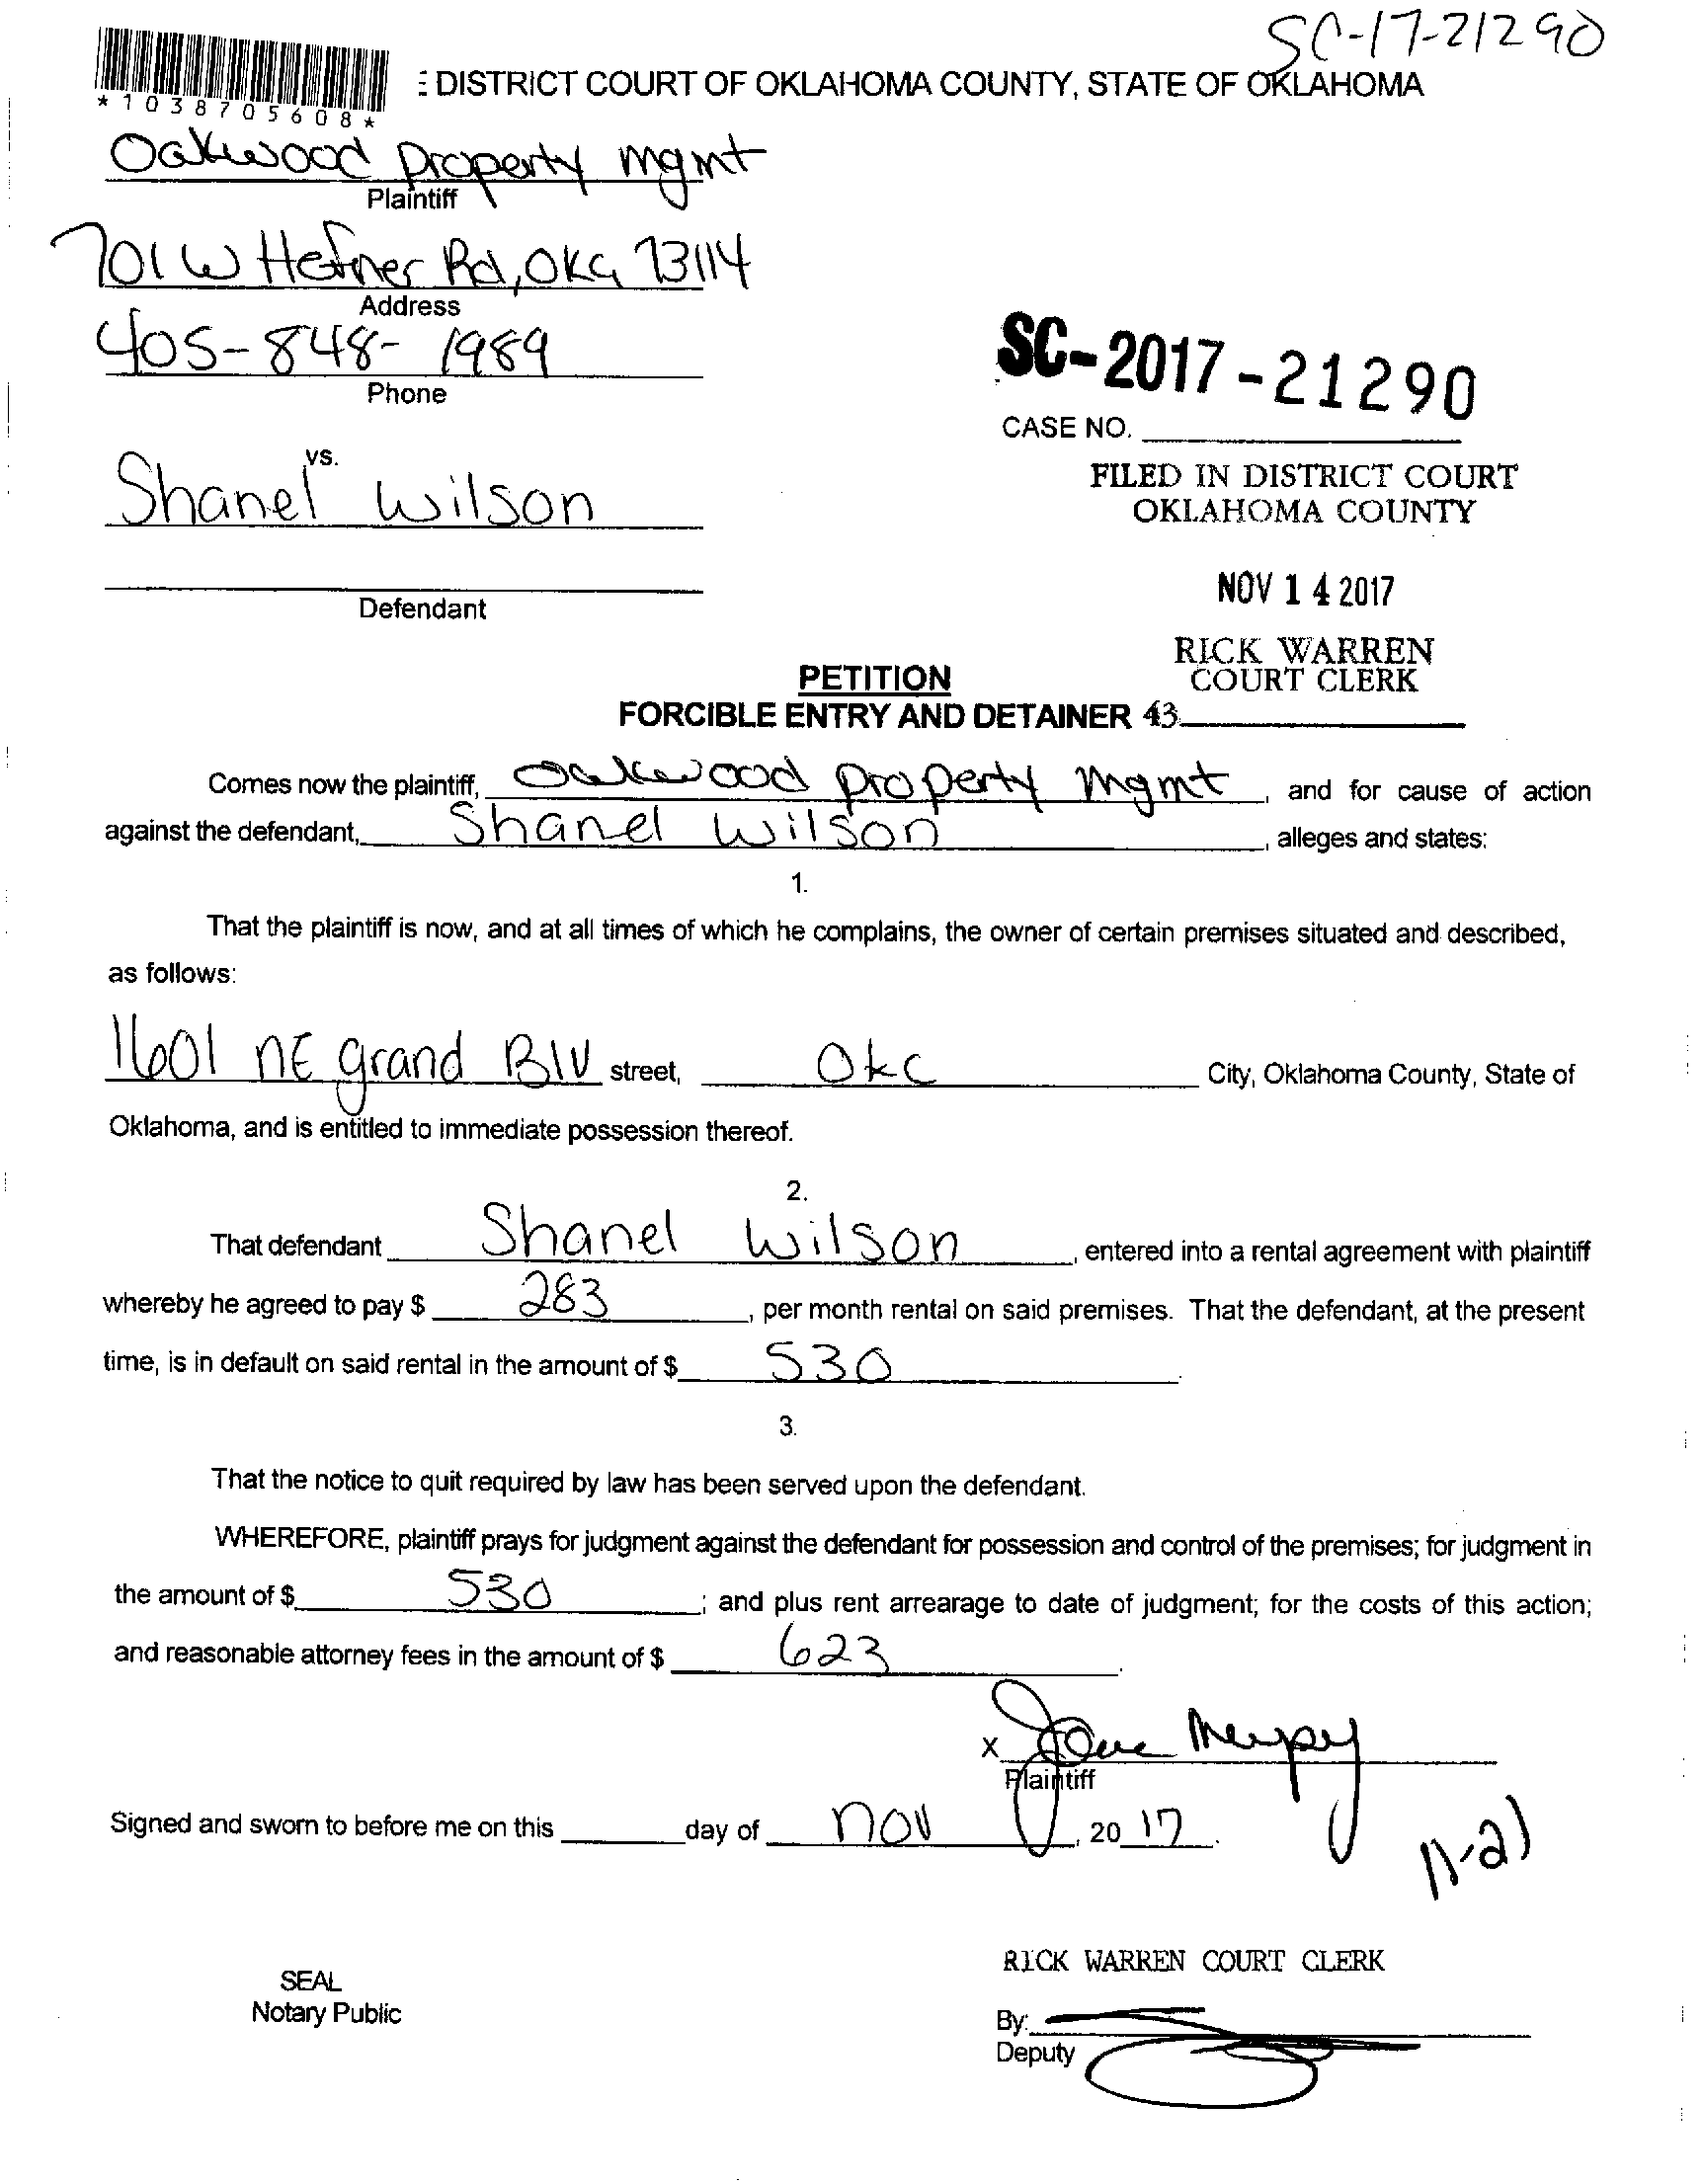 SC-17-21290
*1038705608*
: DISTRICT COURT OF OKLAHOMA COUNTY, STATE OF OKLAHOMA
Oakwood property mgmt
Plaintiff
701 W Hefner Rd, OKC, 73114
Address
405-848-1989
Phone
SC-2017-21290
CASE NO.
vs.
Shanel Wilson
FILED IN DISTRICT COURT
OKLAHOMA COUNTY
NOV 14 2017
Defendant
RICK WARREN
COURT CLERK
PETITION
FORCIBLE ENTRY AND DETAINER 43
Comes now the plaintiff, Oakwood property mgmt, and for cause of action
against the defendant, Shanel Wilson, alleges and states:
1.
That the plaintiff is now, and at all times of which he complains, the owner of certain premises situated and described,
as follows:
1601 NE grand BlV street, Okc City, Oklahoma County, State of
Oklahoma, and is entitled to immediate possession thereof.
2.
That defendant Shanel Wilson, entered into a rental agreement with plaintiff
whereby he agreed to pay $ 283, per month rental on said premises. That the defendant, at the present
time, is in default on said rental in the amount of $ 530.
3.
That the notice to quit required by law has been served upon the defendant.
WHEREFORE, plaintiff prays for judgment against the defendant for possession and control of the premises; for judgment in
the amount of $ 530; and plus rent arrearage to date of judgment; for the costs of this action;
and reasonable attorney fees in the amount of $ 623.
X
Plaintiff
Signed and sworn to before me on this day of nov, 20 17.
11-21
RICK WARREN COURT CLERK
SEAL
Notary Public
By:
Deputy